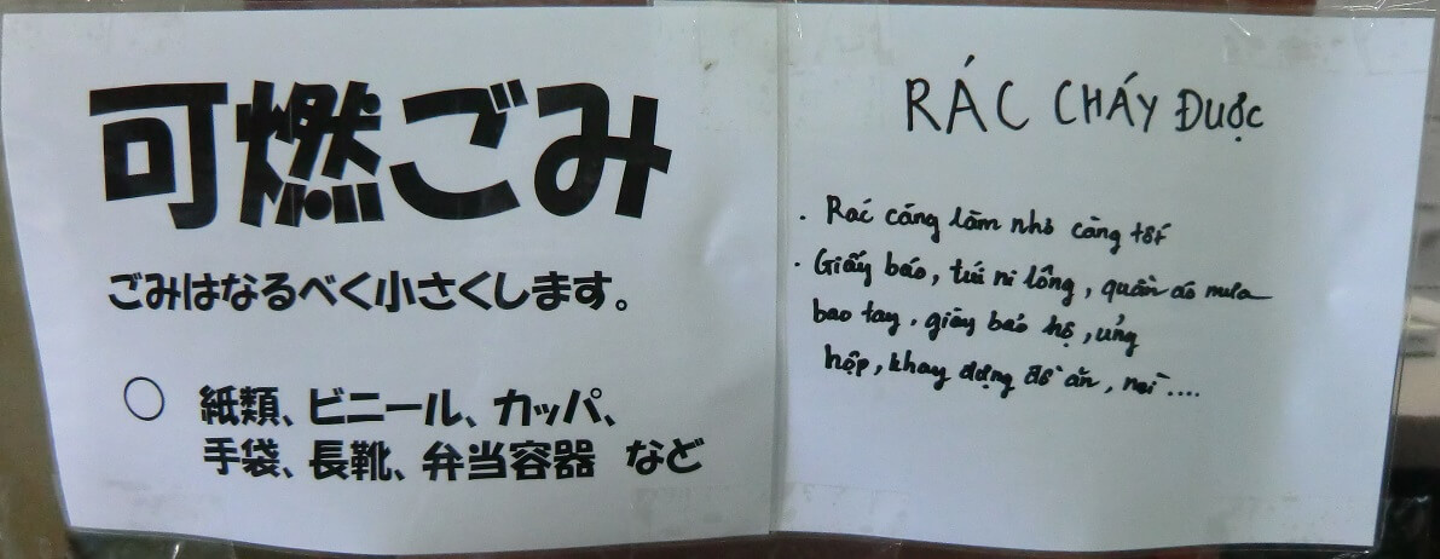 可燃ごみ
ごみはなるべく小さくします。
○ 紙類、ビニール、カッパ、
手袋、長靴、弁当容器 など
RÁC CHÁY ĐƯỢC
. Rác càng làm nhỏ càng tốt
. Giấy báo, túi ni lông, quần áo mưa
bao tay, giày bảo hộ, ủng
hộp, khay đựng đồ ăn,